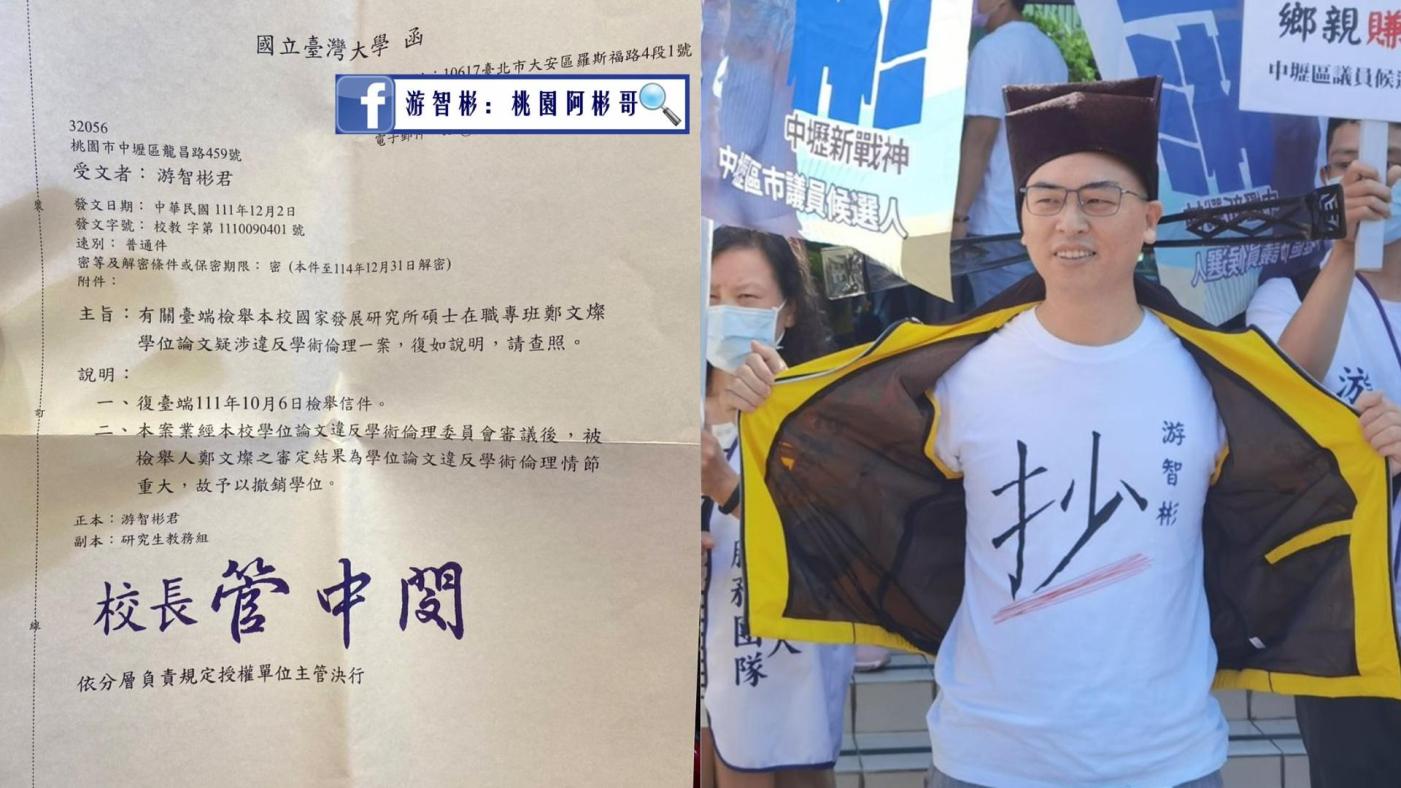 國立臺灣大學 函
：10617臺北市大安區羅斯福路4段1號
游智彬：桃園阿彬哥
電子郵件
32056
桃園市中壢區龍昌路459號
受文者：游智彬君
發文日期：中華民國 111年12月2日
發文字號：校教 字第 1110090401 號
速別：普通件
密等及解密條件或保密期限：密 (本件至114年12月31日解密)
附件：
主旨：有關臺端檢舉本校國家發展研究所碩士在職專班鄭文燦
學位論文疑涉違反學術倫理一案，復如說明，請查照。
說明：
一、復臺端111年10月6日檢舉信件。
二、本案業經本校學位論文違反學術倫理委員會審議後，被
檢舉人鄭文燦之審定結果為學位論文違反學術倫理情節
重大，故予以撤銷學位。
正本：游智彬君
副本：研究生教務組
校長 管中閔
依分層負責規定授權單位主管決行
訂
線
中壢新戰神
中壢區市議員候選人
鄉親賺
中壢區議員候選
抄
游智彬
游
服務團隊
人